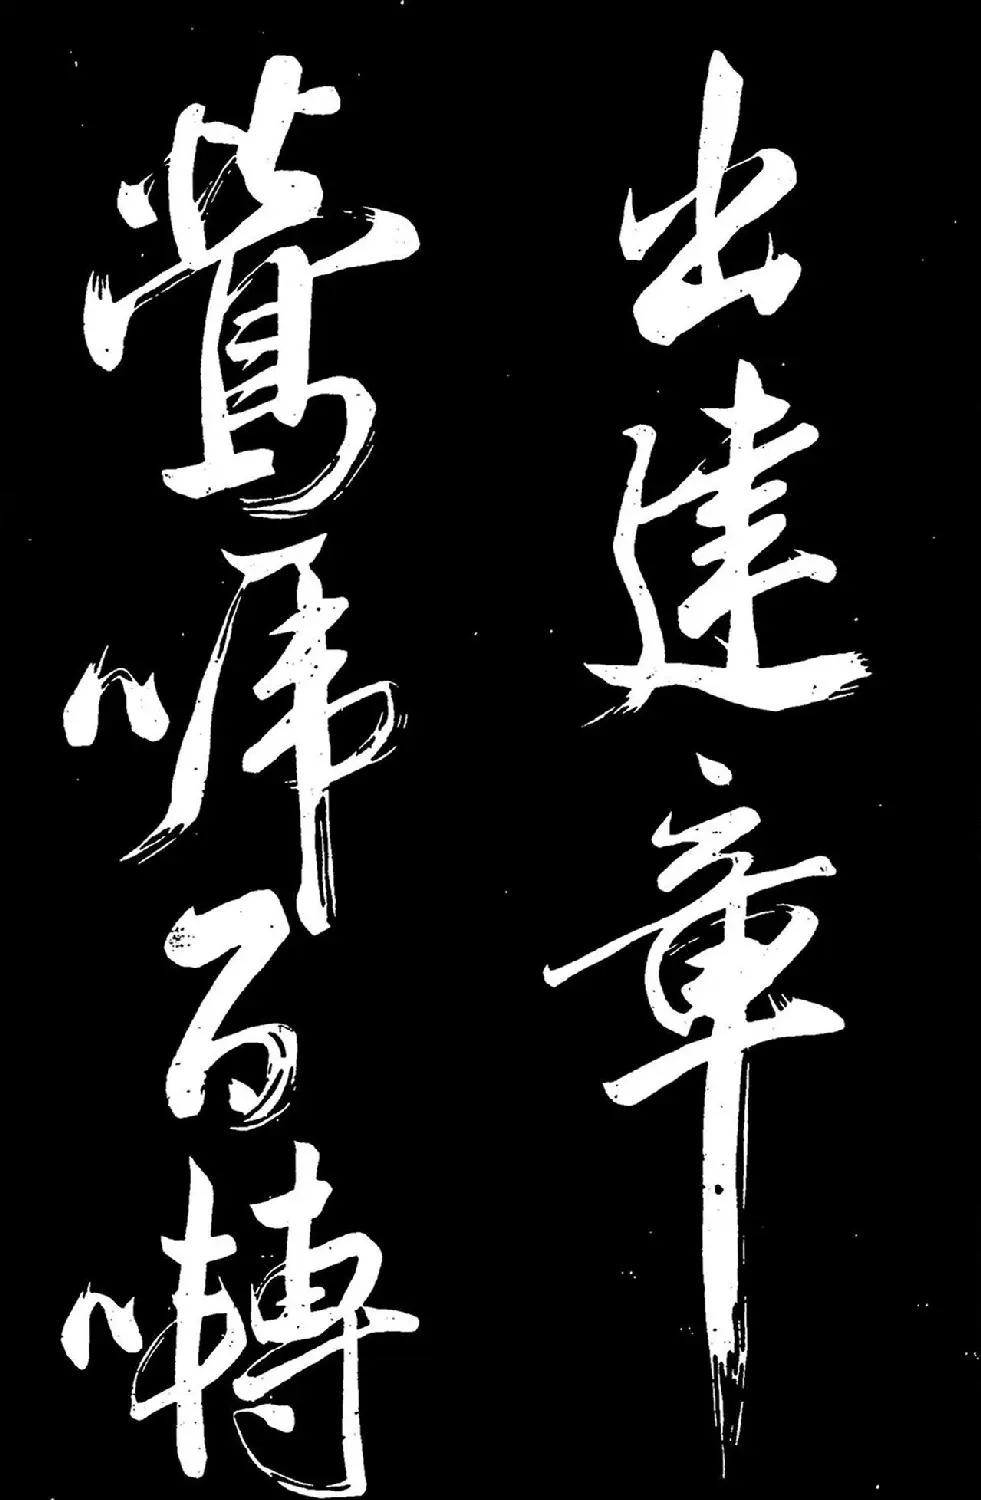 出建章
鶯啼百囀